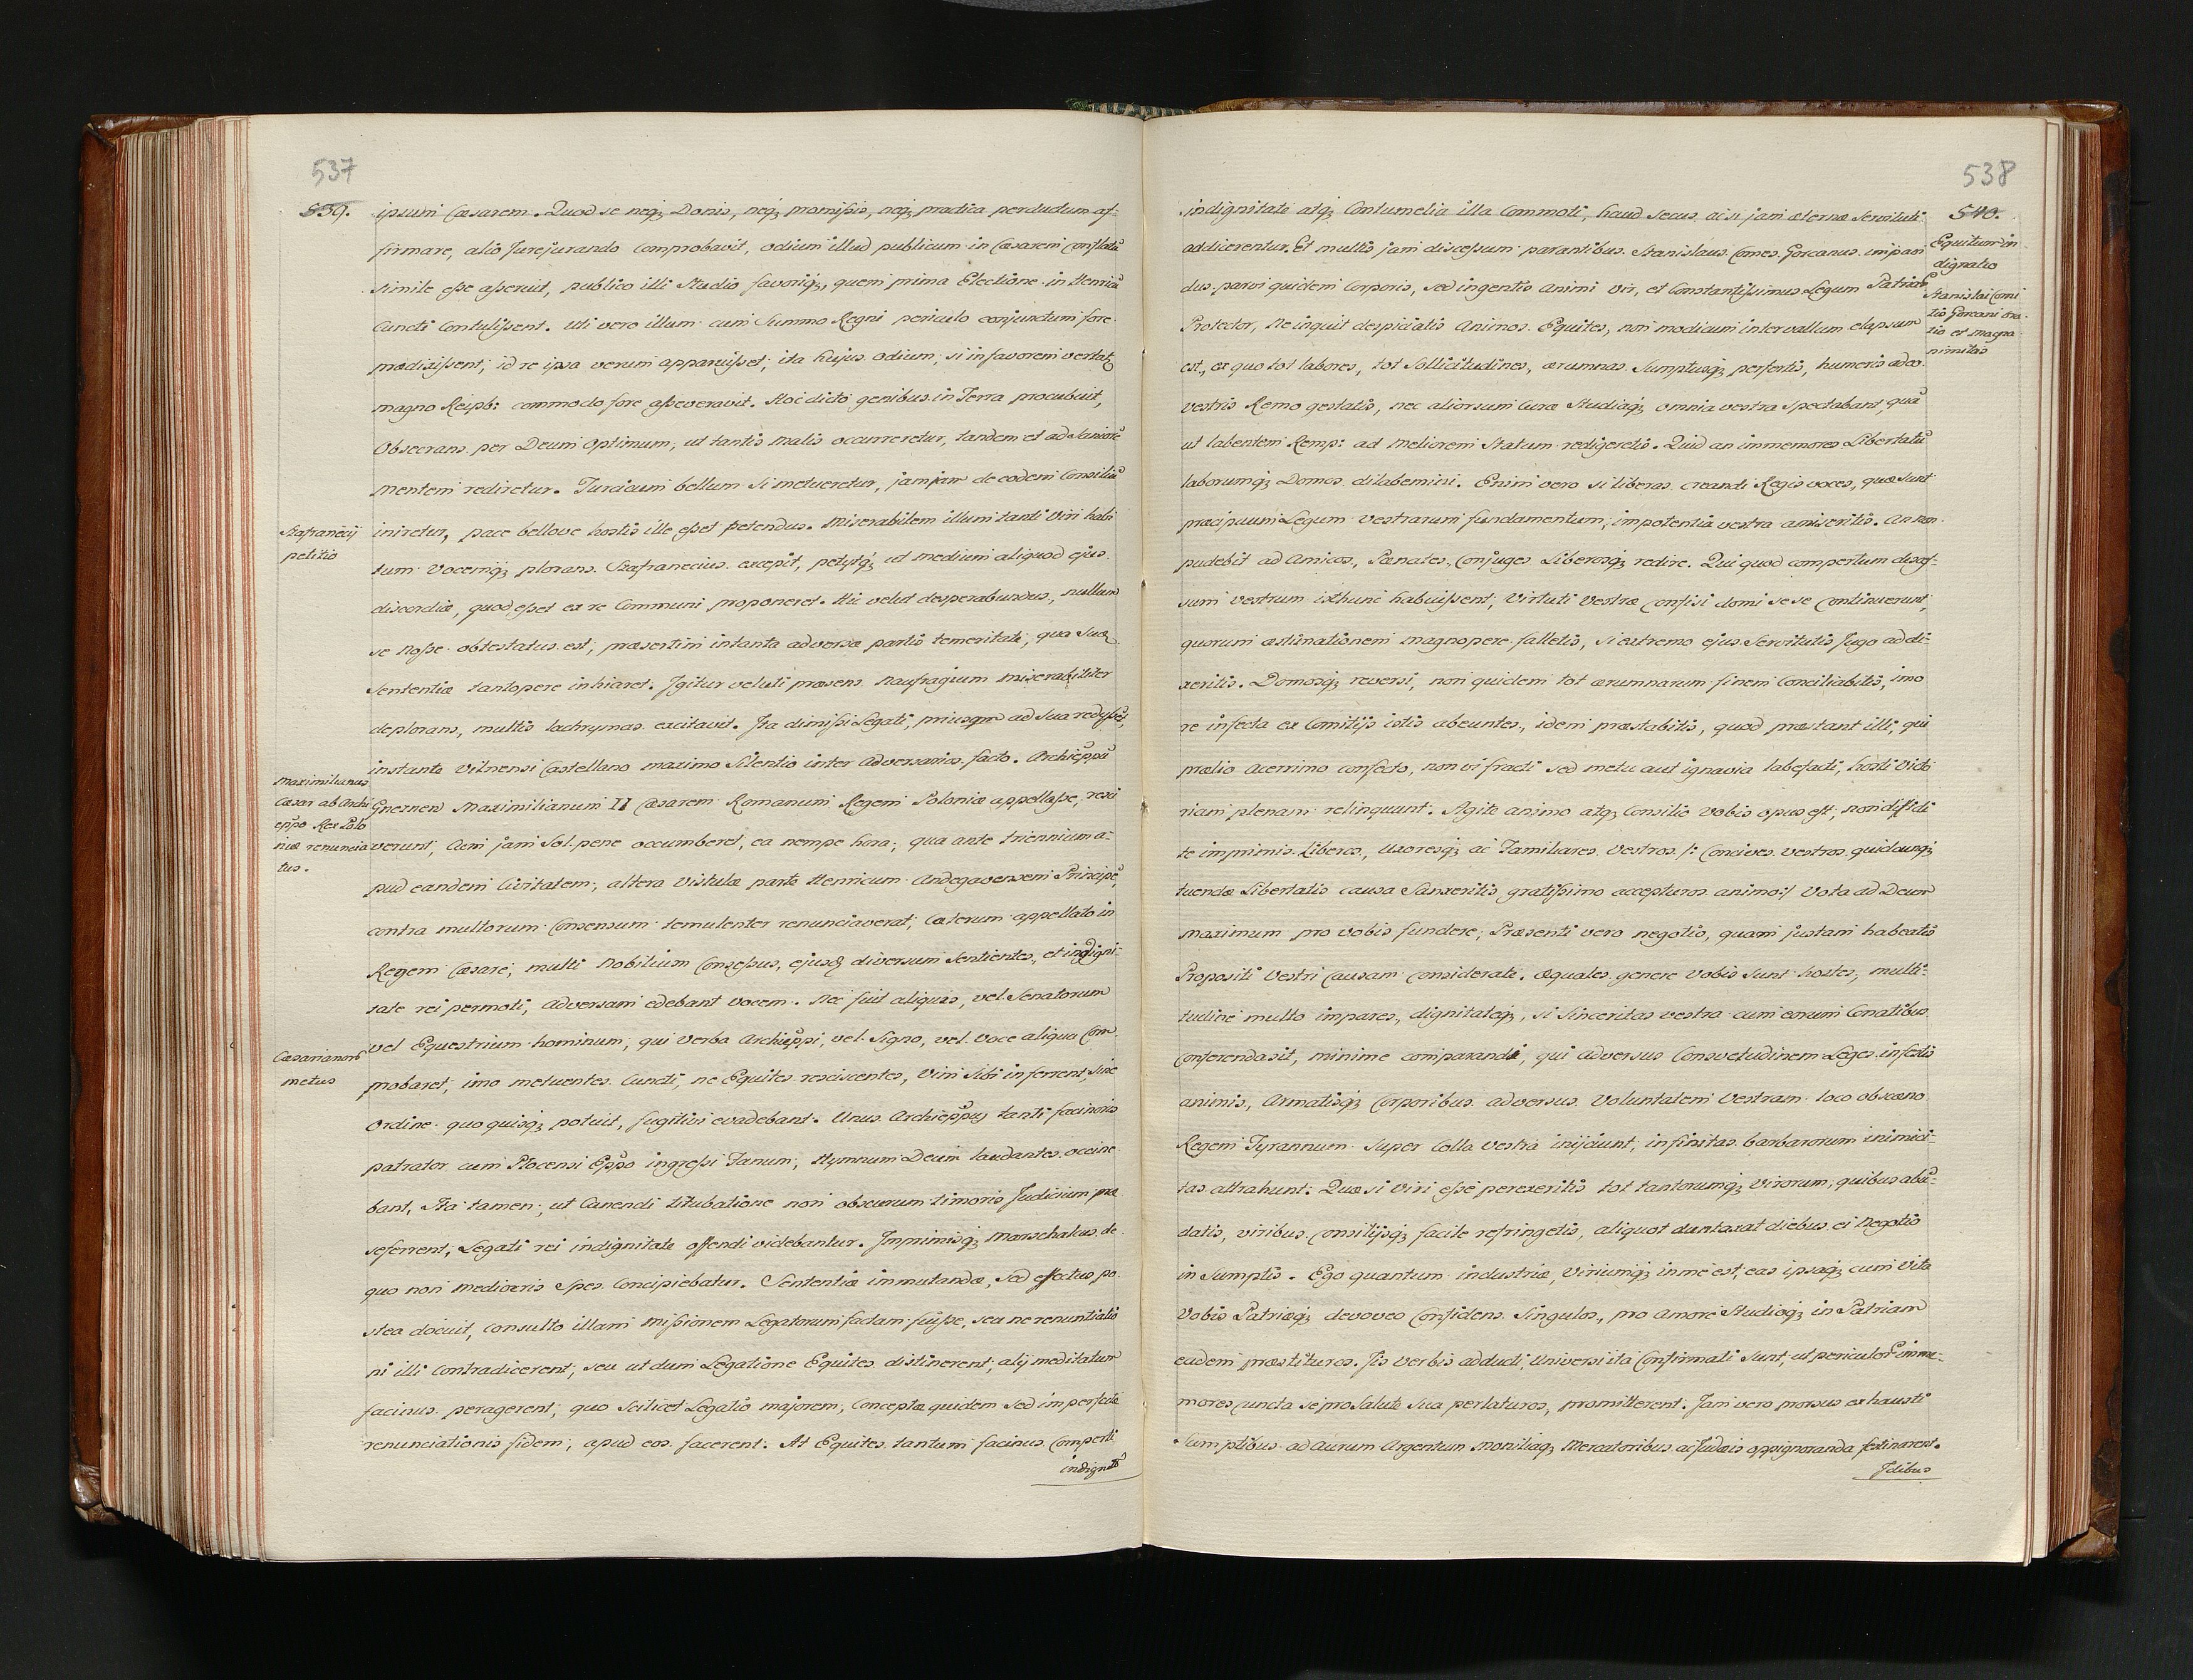 537
539.
ipsum Cæsarem. Quod se neq; Donis, neq; promißis, neq; practica perductum af-
firmare, alio Jurejurando comprobavit, odium illud publicum in Cæsarem conflatũ
simile eße aßeruit, publico illi Studio favoriq;, quem prima Electione in Henricũ
Cuncti Contulißent. Uti vero illum cum Summo Regni periculo conjunctum fore
prædixißent, id re ipsa verum apparuißet; ita hujus odium, si in favorem vertat
magno Reipb: commodo fore aßeveravit. Hoc dicto genibus in Terra procubuit,
Obsecrans per Deum Optimum, ut tantis malis occurreretur, tandem et ad Saniorẽ
mentem rediretur. Turcicum bellum si metueretur, jamjam de eodem Consiliũ
Szafranecij
petitio
iniretur, pace bellove hostis ille eßet petendus. Miserabilem illum tanti Viri habi
tum Vocemq; plorans Szafranecius excepit, petijtq; ut medium aliquod ejus
discordiæ, quod eßet ex re Communi proponeret. Hic velut desperabundus, nullum
se Noße obtestatus est, præsertim in tanta adversæ partis temeritate, qua Suæ
Sententiæ tantopere inhiaret. Igitur veluti præsens Naufragium miserabiliter
deplorans, multis lachrymas excitavit. Ita dimißi Legati, priusqm ad Sua redijßet,
instante Vilnensi Castellano maximo Silentio inter Adversarios facto. Archieppũ
Maximilianus
Cæsar ab Archi
eppo Rex Polo
niæ renuncia
tus.
Gnesnen Maximilianum II Cæsarem Romanum Regem Poloniæ appellaße, resci
verunt, Cum jam Sol pene occumberet, ea nempe hora, qua ante triennium a-
pud eandem Civitatem, altera Vistulæ parte Henricum Andegavensem Principẽ,
contra multorum Consensum temulenter renunciaverat, Cæterum appellato in
Regem Cæsare, multi Nobilium Conseßus, ejusq; diversum Sentientes, et indigni-
tate rei permoti, Adversam edebant vocem. Nec fuit aliquis, vel Senatorum
Cæsarianorũ
metus
vel Equestrium hominum, qui Verba Archieppi, vel Signo, vel Voce aliqua Com
probaret, imo metuentes Cuncti, ne Equites resciscentes, Vim Sibi inferrent, Sine
Ordine quo quisq; potuit, fugitivi evadebant. Unus Archieppus tanti facinoris
patrator cum Plocensi Eppo ingreßi Fanum, Hymnum Deum laudantes occine
bant, Ita tamen, ut Canendi titubatione non obscurum timoris Judicium præ
seferrent, Legati rei indignitate offendi videbantur. Imprimisq; Marschalcus de
quo non mediocris Spes Concipiebatur. Sententiæ immutandæ, Sed effectus po
stea docuit, consulto illam Mißionem Legatorum factam fuiße, seu ne renuntiatio
ni illi Contradicerent, seu ut dum Legatione Equites distinerent, alij meditatum
facinus peragerent, quo Scilicet Legatio majorem, Conceptæ quidem sed imperfectæ
renunciationis fidem, apud eos facerent. At Equites tantum facinus Comperti
indignitã
538
540.
indignitate atq; Contumelia illa Commoti, haud secus ac si jam æternæ Servituti
Equitum in
dignatio
addicerentur. Et multis jam disceßum parantibus Stanislaus Comes Gorcanus impari
dus parvi quidem Corporis, sed ingentis Animi Vir, et Constantißimus Legum Patriarũ
Stanislai Comi
tis Gorcani Ora
tio et magna
nimitas
Protector, Ne inquit despiciatis Animos Equites, non modicum intervallum elapsum
est, ex quo tot labores, tot Sollicitudines, ærumnas Sumptusq; perfertis, humeris adeo
vestris Remp gestatis, nec aliorsum Curæ Studiaq; omnia vestra Spectabant, quã
ut labentem Remp: ad Meliorem Statum redigeretis. Quid an immemores Libertatũ
laborumq; Domos dilabemini. Enim vero si liberas creandi Regis voces, quæ Sunt
præcipuum Legum vestrarum fundamentum, impotentia vestra amiseritis. An Non
pudebit ad Amicos, Pænates, Conjuges Liberosq; redire. Qui quod compertum disceß-
sum vestrum isthunc habuißent, Virtuti Vestræ confisi domi sese Continuerunt,
quorum æstimationem magnopere falletis, si extremo ejus Servitutis Jugo addi-
xeritis. Domosq; reversi, non quidem tot ærumnarum finem Conciliabitis, imo
re infecta ex Comitijs istis abeuntes, idem præstabitis, quod præstant illi, qui
prælio Acerrimo confecto, non vi fracti sed metu aut ignavia labefacti, hosti Victo
riam plenam relinquant. Agite animo atq; Consilio Vobis opus est, non diffidi
te imprimis Liberos, uxoresq; ac Familiares Vestros /: Concives vestros quidcunq;
tuendæ Libertatis causa Sanxeritis gratißimo accepturos animo:/ Vota ad Deum
maximum pro vobis fundere, Præsenti vero negotio, quam justam habeatis
Propositi Vestri Causam Considerate. Æquales genere Vobis Sunt hostes, multi-
tudine multo impares, dignitateq;, si Sinceritas vestra cum eorum Conatibus
Conferenda sit, minime comparandi, qui Adversus Consvetudinem Leges infestis
animis, Armatisq; Corporibus adversus Voluntatem Vestram loco obscæno
Regem Tyrannum Super Colla Vestra inijciunt, infinitas barbarorum inimici-
tas attrahunt. Quæ si Viri eße perexeritis tot tantorumq; Virorum, quibus abũ-
datis, viribus Consilijsq; facile refringetis, aliquot duntaxat diebus ei Negotio
in Sumptis. Ego quantum industriæ, Viriumq; in me est, eas ipsaq; cum Vita
Vobis Patriæq; devoveo Confidens Singulos, pro Amore Studioq; in Patriam
eadem præstituros. Iis verbis adducti, Universi ita Confirmati Sunt, ut periculorũ imme-
mores Cuncta se pro Salute Sua perlaturos, promitterent. Jam vero prorsus exhausti
Sumptibus ad Aurum Argentum Moniliaq; Mercatoribus ac Judæis oppignoranda festinarent.
Idibus